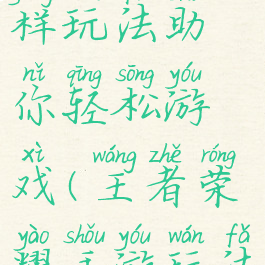 样玩法助
nǐ qīng sōng yóu
你轻松游
xì wáng zhě róng
戏(王者荣
yào shǒu yóu wán fǎ
耀手游玩法